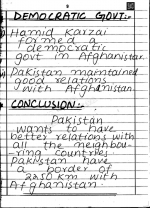 DEMOCRATIC GOVT:-
i) Hamid Karzai
formed a
democratic
govt in Afghanistan.
ii) Pakistan maintained
good relations
with Afghanistan.
CONCLUSION:-
Pakistan
wants to have
better relations with
all the neighbou-
ring countries.
Pakistan have
a border of
2250 km with
Afghanistan.